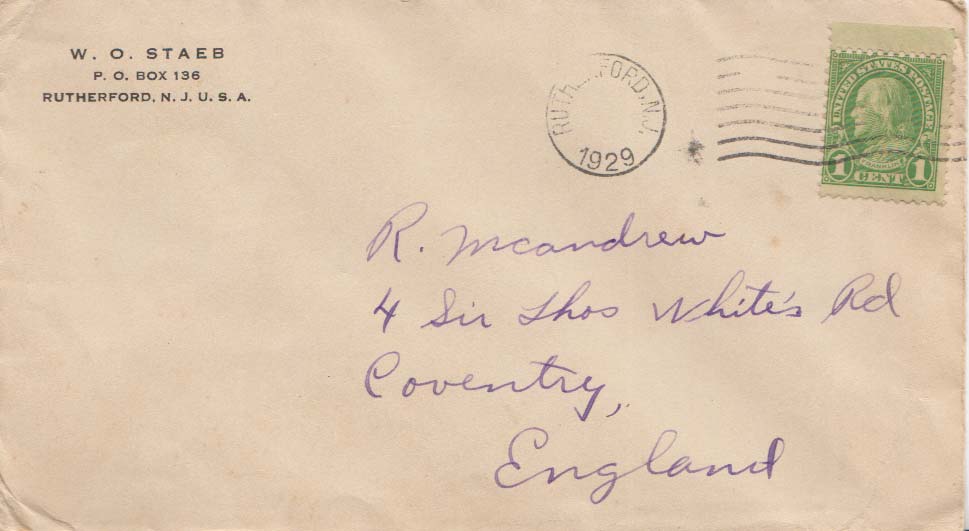 W. O. STAEB
P. O. BOX 136
RUTHERFORD, N. J. U. S. A.
RUTHERFORD, N.J.
1929
UNITED STATES POSTAGE
FRANKLIN
1 CENT 1
R. Mcandrew
4 Sir Thos White's Rd
Coventry,
England